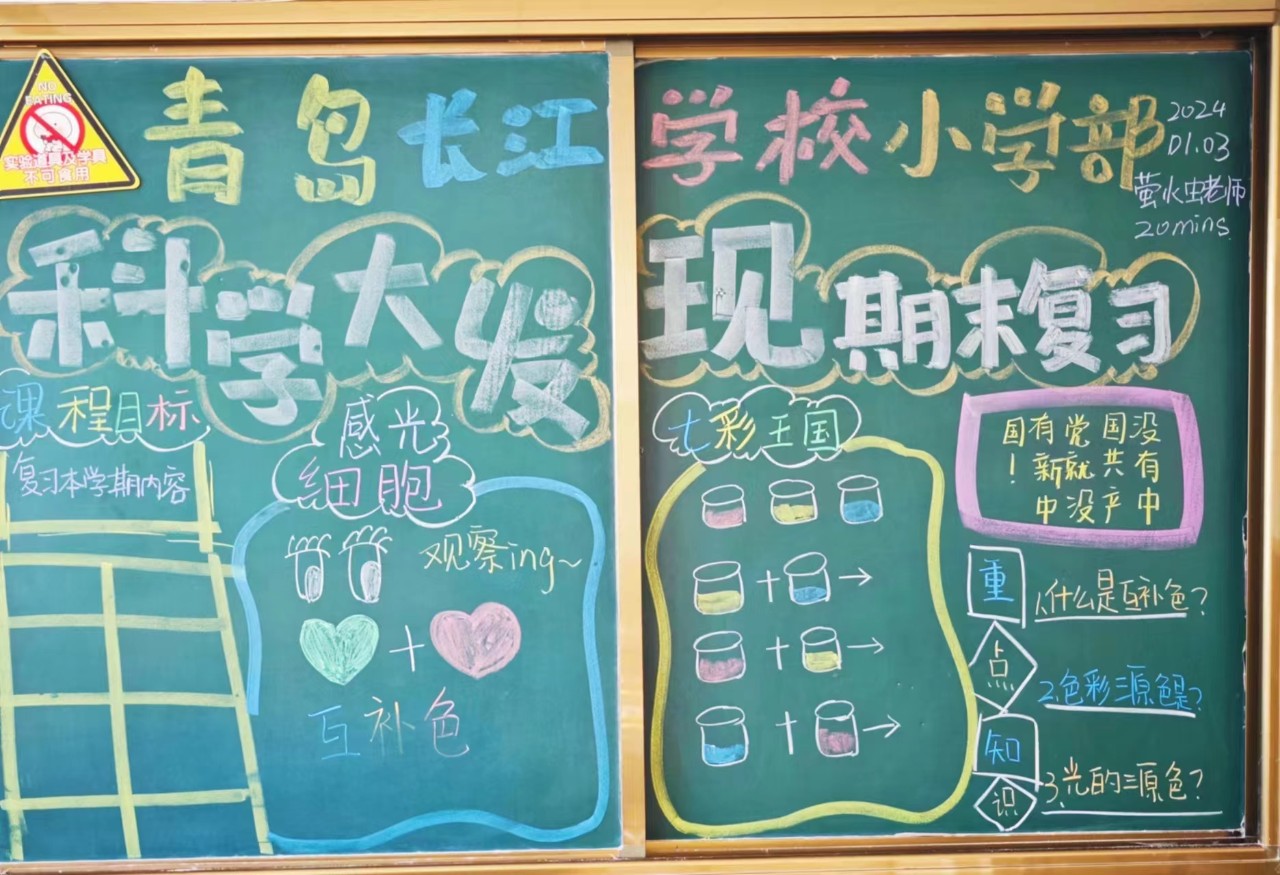 NO
EATING
实验道具及学具
不可食用
青岛长江学校小学部
2024
01.03
萤火虫老师
20mins
科学大发现期末复习
课程目标
复习本学期内容
感光
细胞
观察ing~
互补色
七彩王国
没有中
国共产
党就没
有新中
国!
重点知识
1.什么是互补色?
2.色彩三原色是?
3.光的三原色?